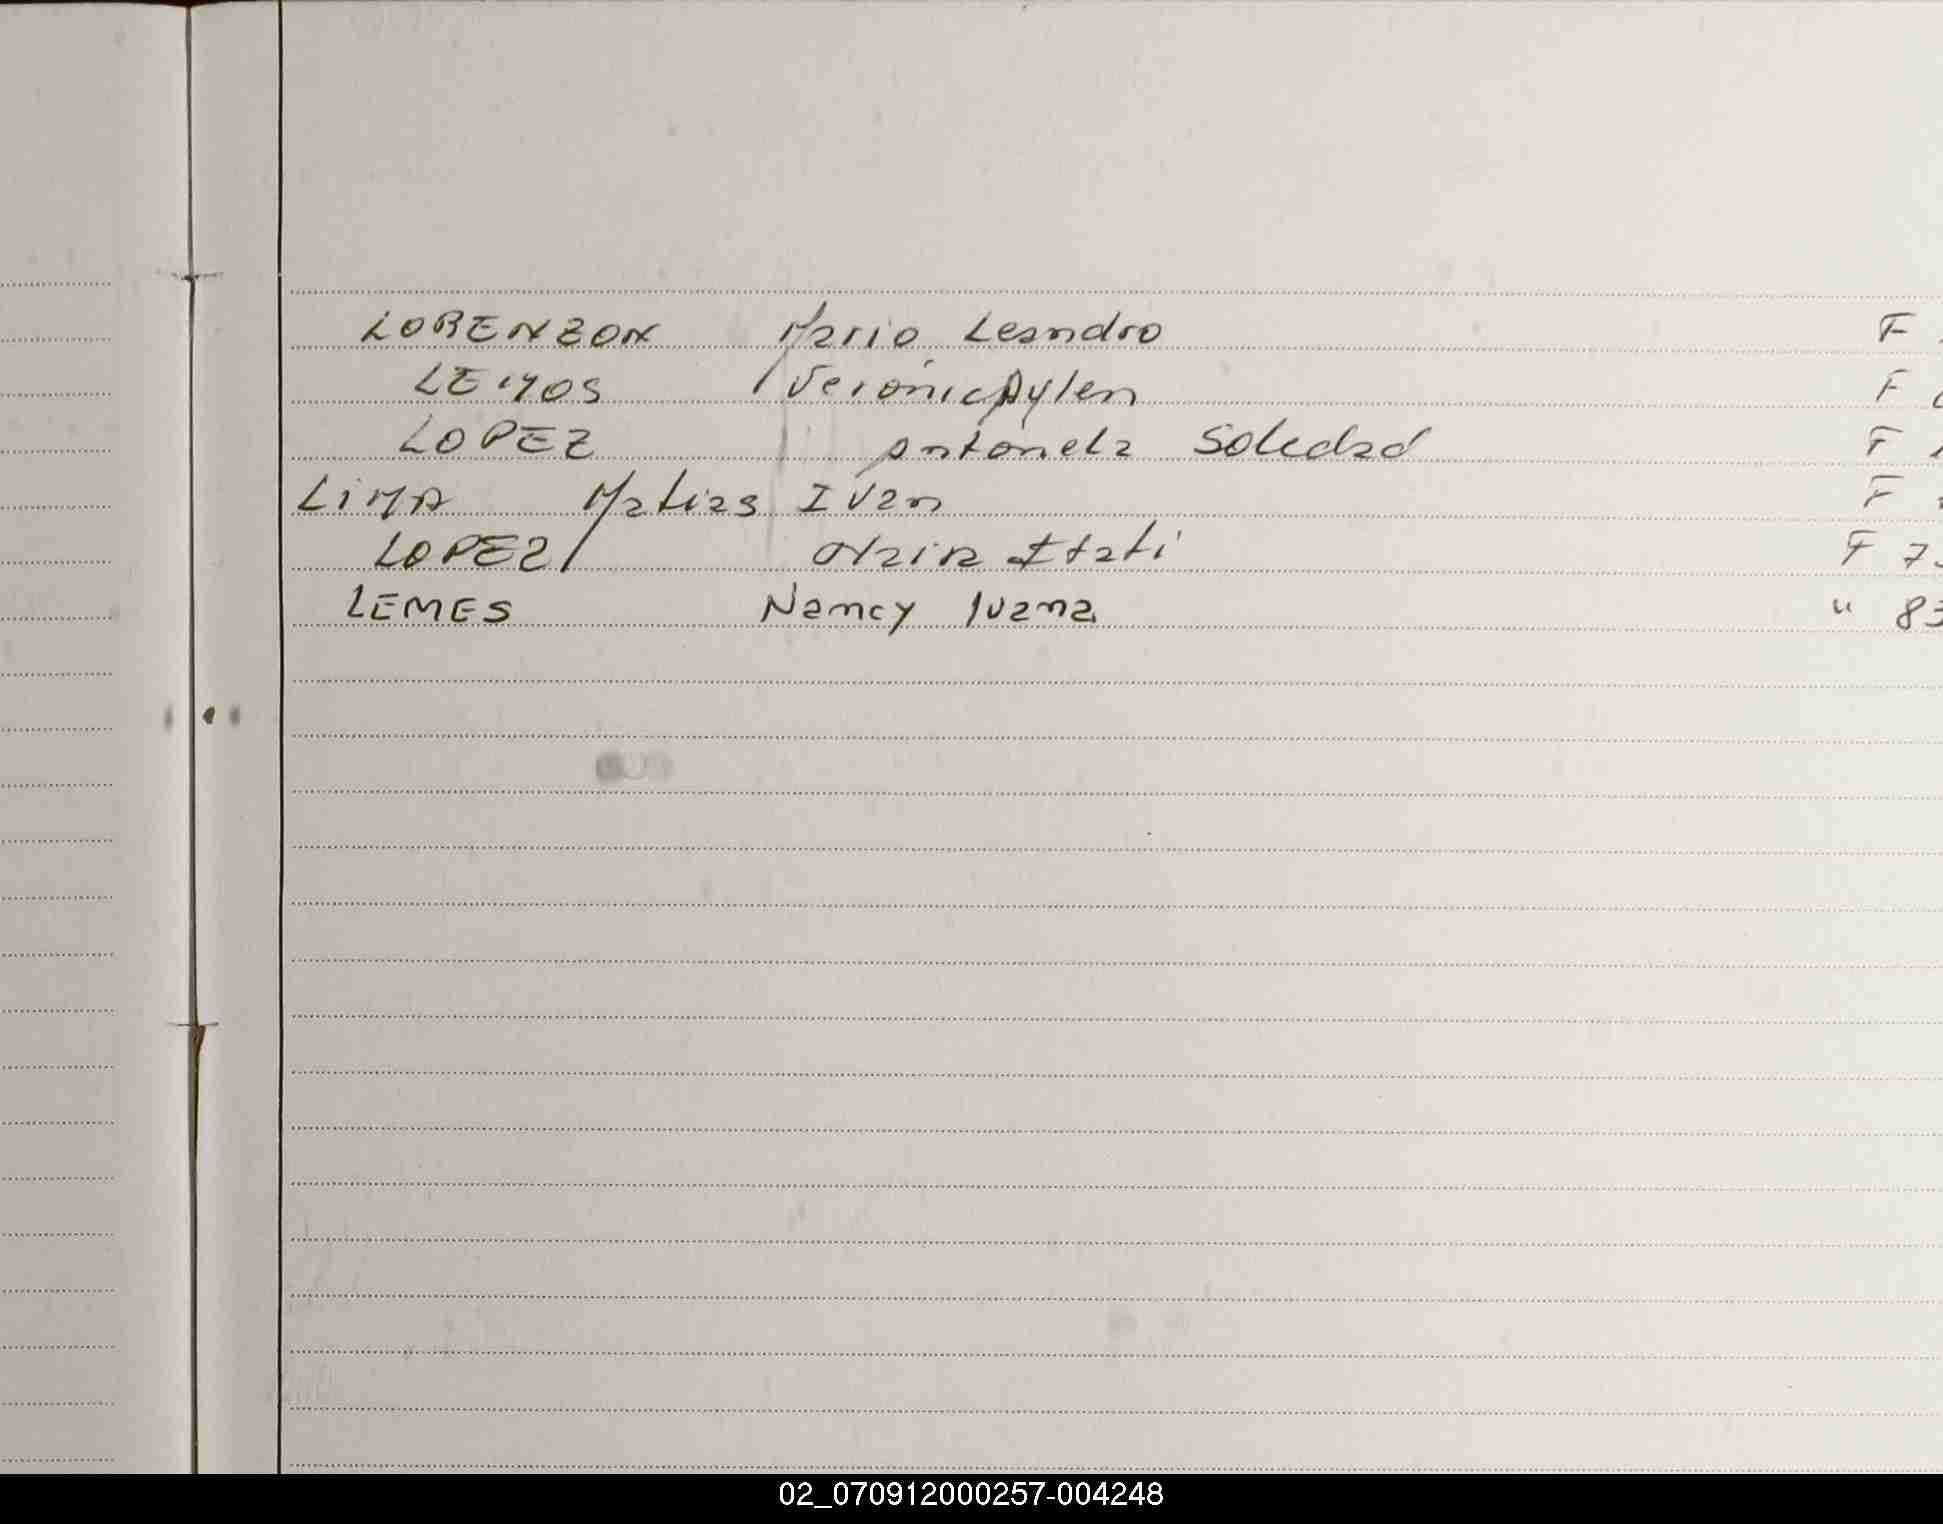 LORENZON Mario Leandro F
LEMOS Veronic Aylen F
LOPEZ Antonela Soledad F
LIMA Matias Ivan F
LOPEZ Naiza Itati F 7
LEMES Nancy Ivana " 83
02_070912000257-004248